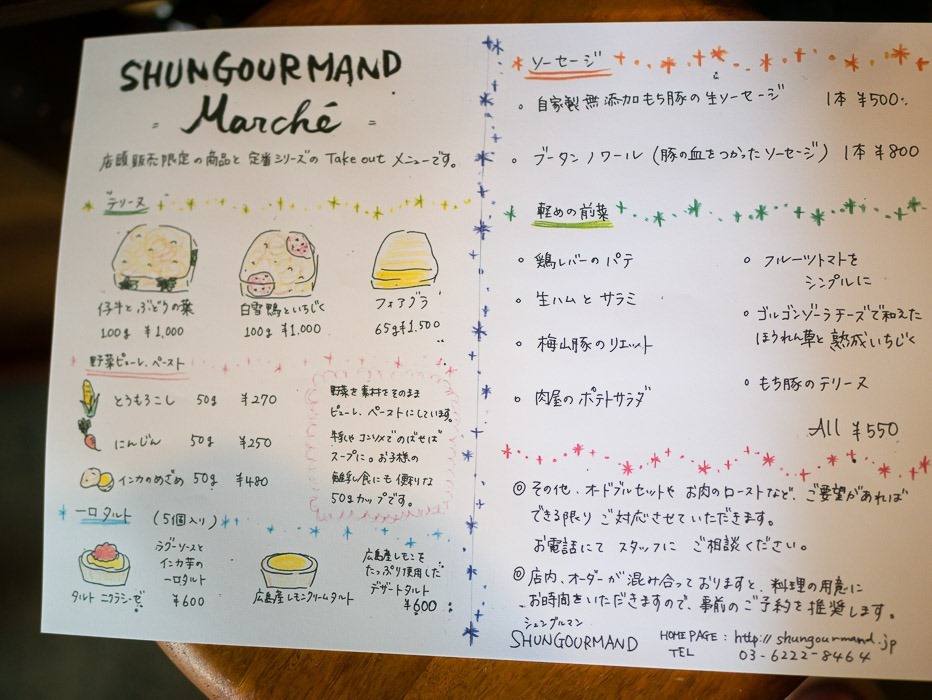 SHUNGOURMAND
- Marché -
店頭販売限定の商品と定番シリーズの Take out メニューです。
テリーヌ
仔牛とぶどうの葉
100g ¥1,000
白雪鴨といちじく
100g ¥1,000
フォアグラ
65g ¥1,500
野菜ピューレ、ペースト
とうもろこし 50g ¥270
にんじん 50g ¥250
インカのめざめ 50g ¥480
野菜を素材そのまま
ピューレ、ペーストにしています。
牛乳やコンソメでのばせば
スープに。お子様の
離乳食にも便利な
50gカップです。
一口タルト (5個入り)
ラグーソースと
インカ芋の
一口タルト
タルト ニクラシーゼ ¥600
広島産レモンクリームタルト
広島産レモンを
たっぷり使用した
デザートタルト
¥600
ソーセージ
。自家製無添加もち豚の生ソーセージ 1本 ¥500.
。ブータンノワール (豚の血をつかったソーセージ) 1本 ¥800
軽めの前菜
。鶏レバーのパテ
。生ハムとサラミ
。梅山豚のリエット
。肉屋のポテトサラダ
。フルーツトマトを
シンプルに
。ゴルゴンゾーラチーズで和えた
ほうれん草と熟成いちじく
。もち豚のテリーヌ
All ¥550
◎その他、オードブルセットやお肉のローストなど、ご要望があれば
できる限りご対応させていただきます。
お電話にてスタッフにご相談ください。
◎店内、オーダーが混み合っておりますと、料理の用意に
お時間をいただきますので、事前のご予約を推奨します。
シュングルマン
SHUNGOURMAND
HOME PAGE : http://shungourmand.jp
TEL 03-6222-8464